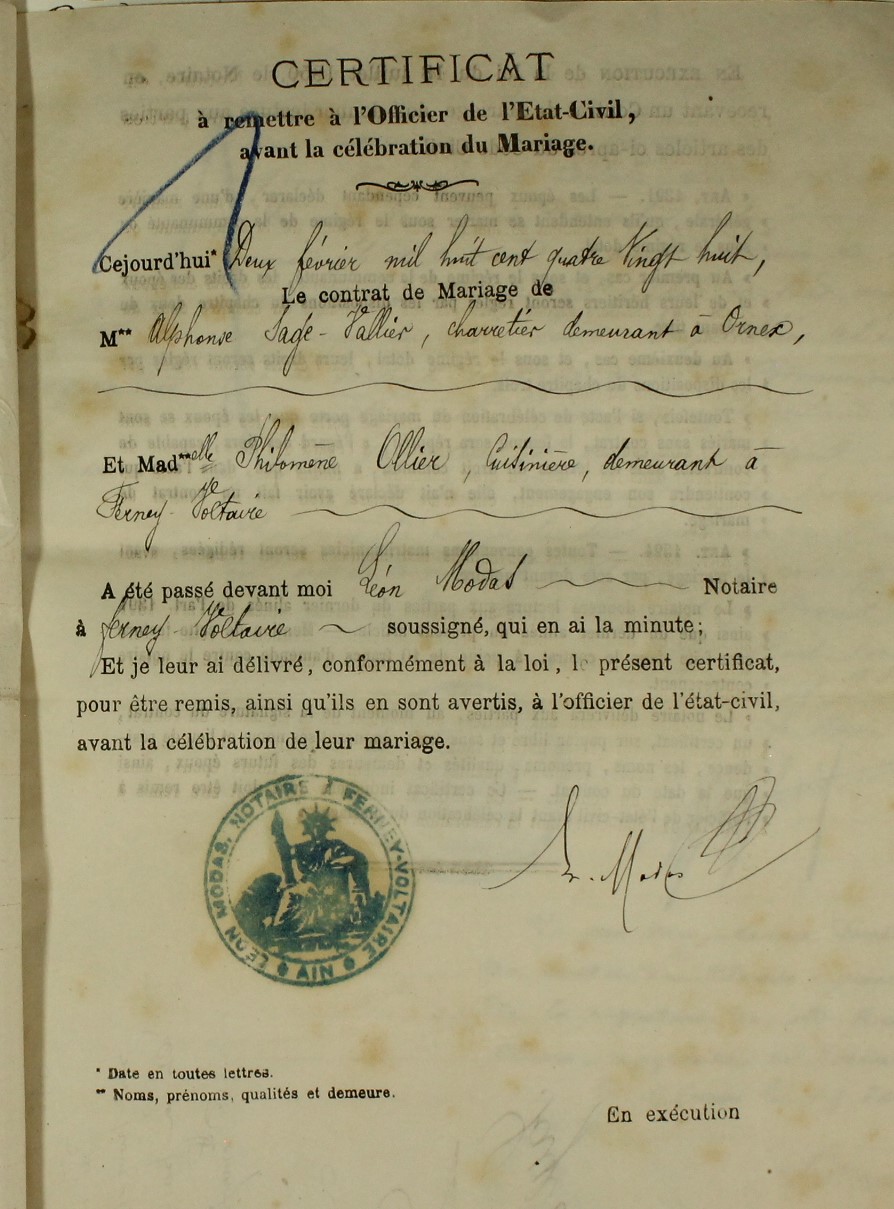 CERTIFICAT
à remettre à l'Officier de l'Etat-Civil,
avant la célébration du Mariage.
Cejourd'hui* Deux février mil huit cent quatre Vingt huit,
Le contrat de Mariage de
M** Alphonse Sage-Vallier, charretier demeurant à Ornex,
Et Mad**elle Philomène Ollier, Cuisinière, demeurant à
Ferney-Voltaire
A été passé devant moi Léon Modas Notaire
à ferney-Voltaire soussigné, qui en ai la minute;
Et je leur ai délivré, conformément à la loi, l présent certificat,
pour être remis, ainsi qu'ils en sont avertis, à l'officier de l'état-civil,
avant la célébration de leur mariage.
LÉON MODAS, NOTAIRE À FERNEY-VOLTAIRE
AIN
L. Modas
* Date en toutes lettres.
** Noms, prénoms, qualités et demeure.
En exécution